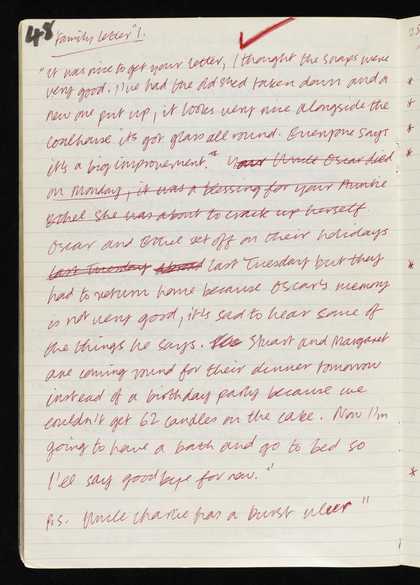 48
Family letter" 1.
"It was nice to get your letter, I thought the snaps were
very good. I've had the old shed taken down and a
new one put up, it looks very nice alongside the
coalhouse it's got glass all round. Everyone says
it's a big improvement." Your Uncle Oscar died
on Monday, it was a blessing for your Auntie
Ethel she was about to crack up herself.
Oscar and Ethel set off on their holidays
last Tuesday abroad last Tuesday but they
had to return home because Oscar's memory
is not very good, it's sad to hear some of
the things he says. Stuart and Margaret
are coming round for their dinner tomorrow
instead of a birthday party because we
couldn't get 62 candles on the cake. Now I'm
going to have a bath and go to bed so
I'll say good bye for now."
P.S. Uncle Charlie has a burst ulcer"